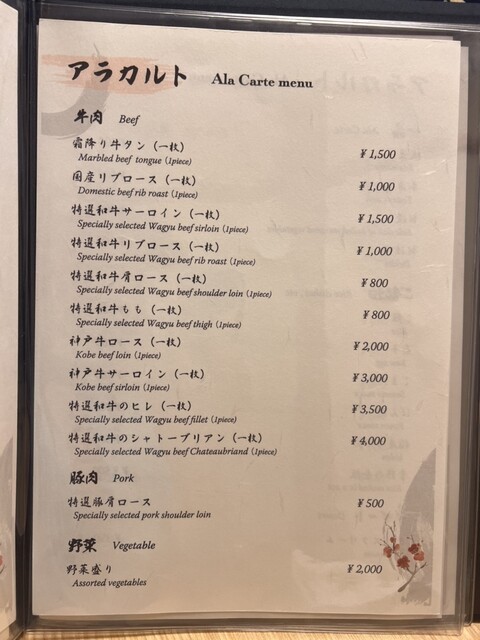 アラカルト Ala Carte menu
牛肉 Beef
霜降り牛タン（一枚）
Marbled beef tongue (1piece) ¥1,500
国産リブロース（一枚）
Domestic beef rib roast (1piece) ¥1,000
特選和牛サーロイン（一枚）
Specially selected Wagyu beef sirloin (1piece) ¥1,500
特選和牛リブロース（一枚）
Specially selected Wagyu beef rib roast (1piece) ¥1,000
特選和牛肩ロース（一枚）
Specially selected Wagyu beef shoulder loin (1piece) ¥800
特選和牛もも（一枚）
Specially selected Wagyu beef thigh (1piece) ¥800
神戸牛ロース（一枚）
Kobe beef loin (1piece) ¥2,000
神戸牛サーロイン（一枚）
Kobe beef sirloin (1piece) ¥3,000
特選和牛のヒレ（一枚）
Specially selected Wagyu beef fillet (1piece) ¥3,500
特選和牛のシャトーブリアン（一枚）
Specially selected Wagyu beef Chateaubriand (1piece) ¥4,000
豚肉 Pork
特選豚肩ロース
Specially selected pork shoulder loin ¥500
野菜 Vegetable
野菜盛り
Assorted vegetables ¥2,000